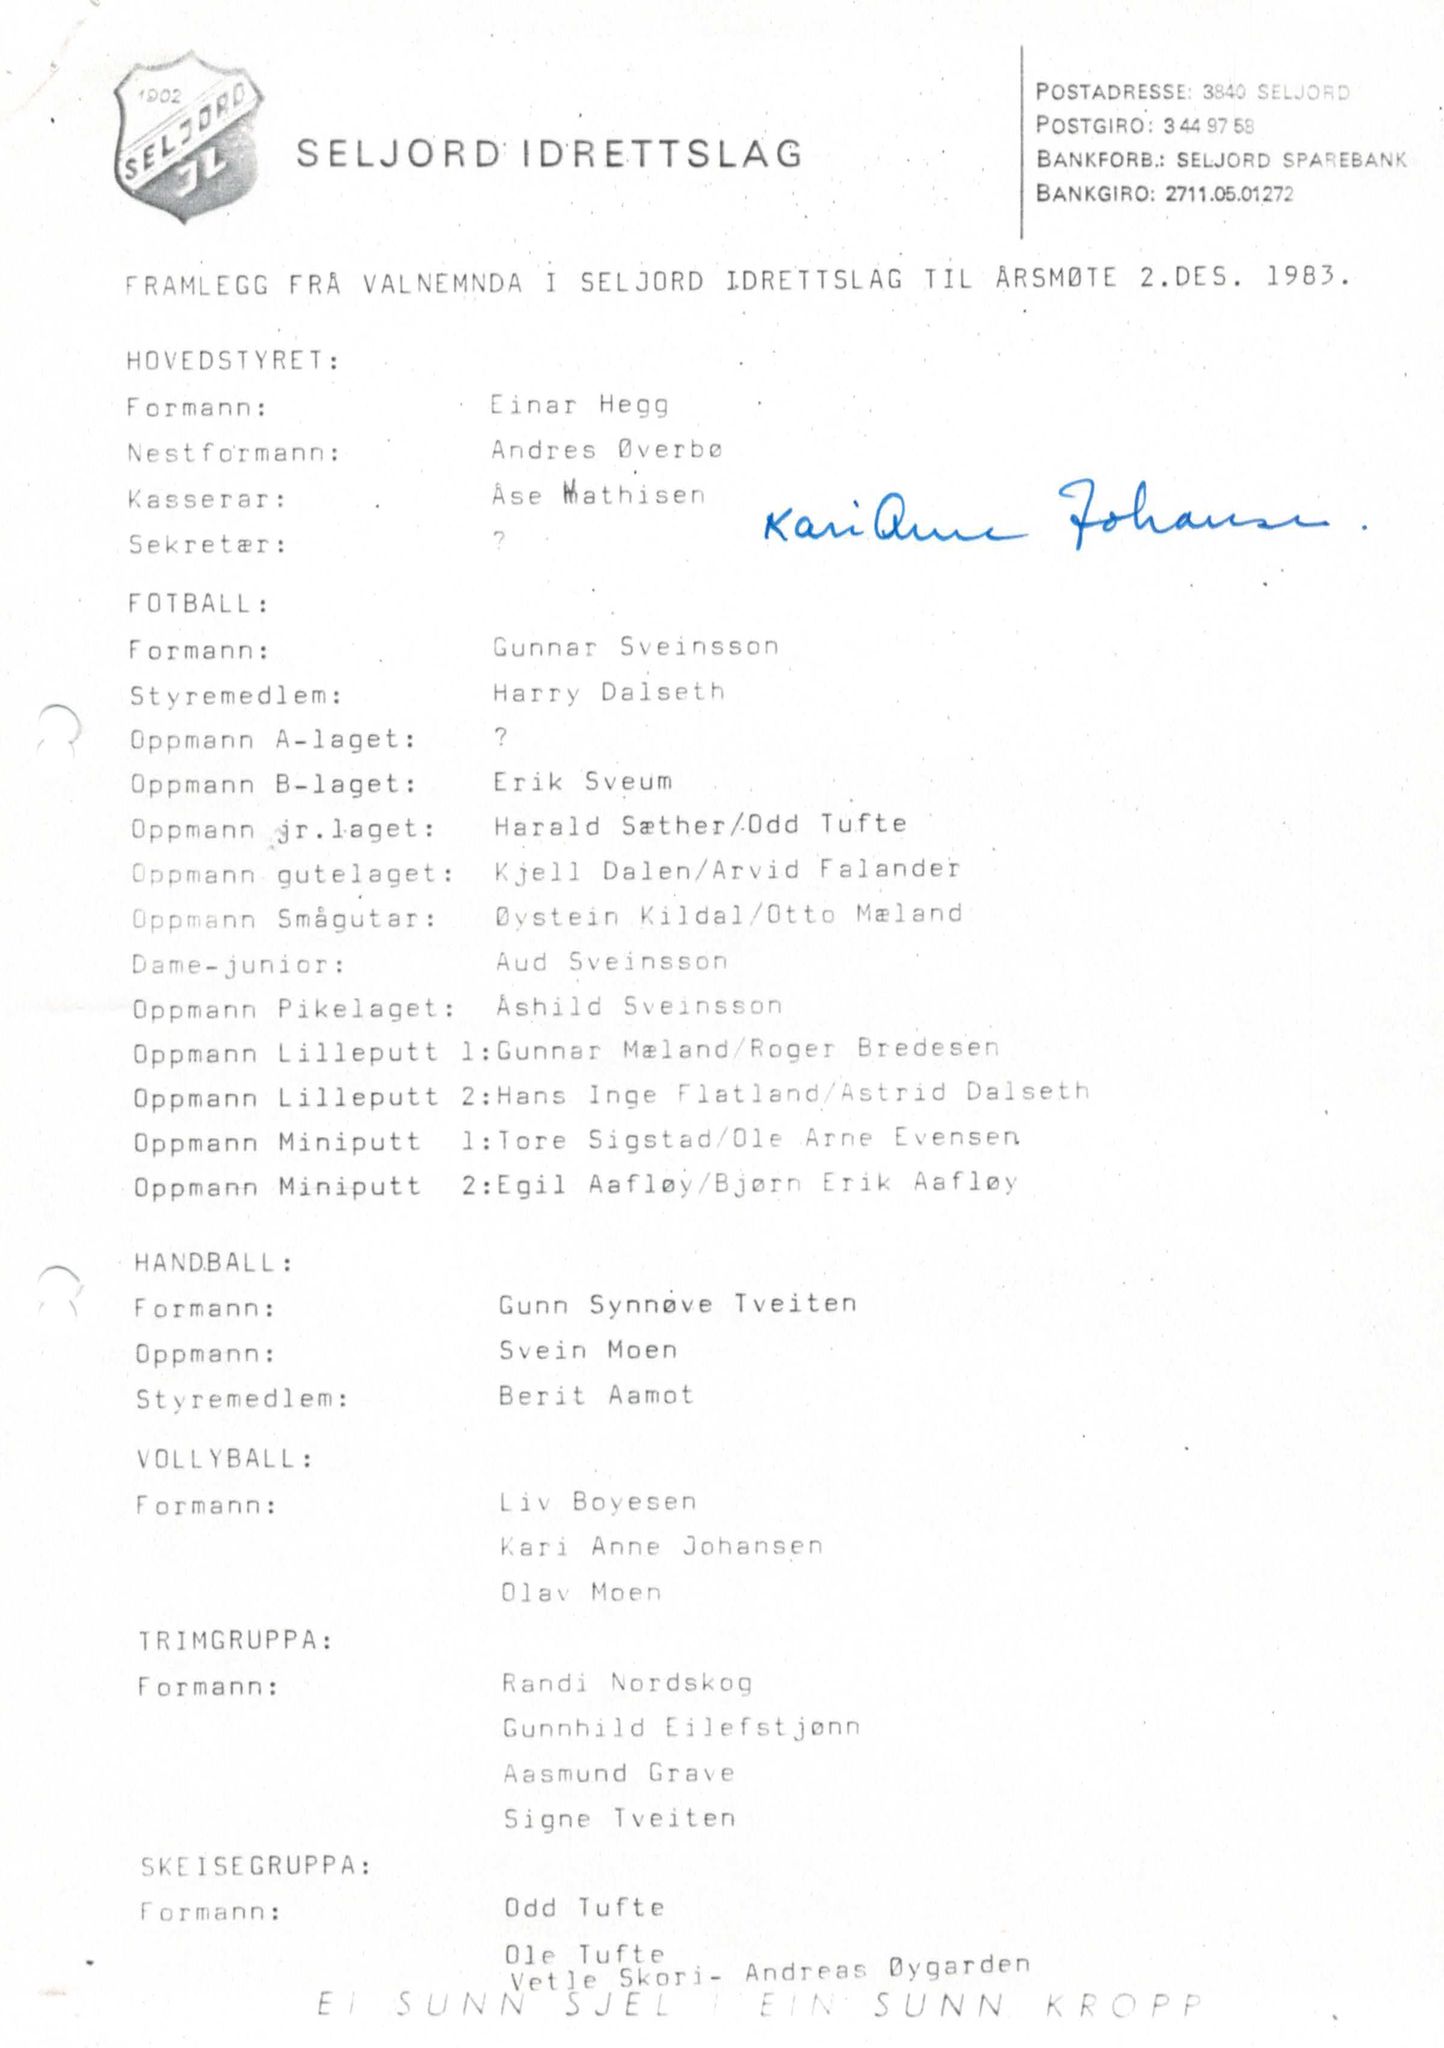 1902
SELJORD
JL
SELJORD IDRETTSLAG
POSTADRESSE: 3840 SELJORD
POSTGIRO: 3 44 97 58
BANKFORB.: SELJORD SPAREBANK
BANKGIRO: 2711.05.01272
FRAMLEGG FRÅ VALNEMNDA I SELJORD IDRETTSLAG TIL ÅRSMØTE 2.DES. 1983.
HOVEDSTYRET:
Formann: Einar Hegg
Nestformann: Andres Øverbø
Kasserar: Åse Mathisen
Sekretær: ? Kari Anne Johansen.
FOTBALL:
Formann: Gunnar Sveinsson
Styremedlem: Harry Dalseth
Oppmann A-laget: ?
Oppmann B-laget: Erik Sveum
Oppmann jr.laget: Harald Sæther/Odd Tufte
Oppmann gutelaget: Kjell Dalen/Arvid Falander
Oppmann Smågutar: Øystein Kildal/Otto Mæland
Dame-junior: Aud Sveinsson
Oppmann Pikelaget: Åshild Sveinsson
Oppmann Lilleputt 1:Gunnar Mæland/Roger Bredesen
Oppmann Lilleputt 2:Hans Inge Flatland/Astrid Dalseth
Oppmann Miniputt 1:Tore Sigstad/Ole Arne Evensen
Oppmann Miniputt 2:Egil Aafløy/Bjørn Erik Aafløy
HANDBALL:
Formann: Gunn Synnøve Tveiten
Oppmann: Svein Moen
Styremedlem: Berit Aamot
VOLLYBALL:
Formann: Liv Boyesen
Kari Anne Johansen
Olav Moen
TRIMGRUPPA:
Formann: Randi Nordskog
Gunnhild Eilefstjønn
Aasmund Grave
Signe Tveiten
SKEISEGRUPPA:
Formann: Odd Tufte
Ole Tufte
Vetle Skori- Andreas Øygarden
EI SUNN SJEL I EIN SUNN KROPP